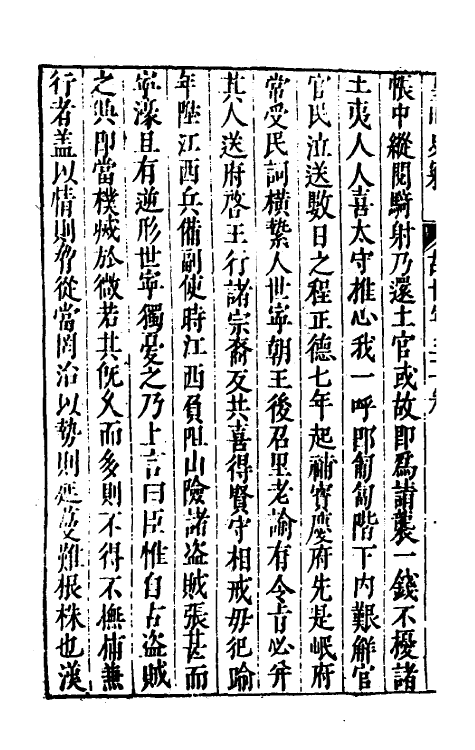 帳中縱閱騎射乃還土官或故即爲諸襲一錢不擾諸
土夷人人喜太守推心我一呼即匍匐階下内艱解官
官民泣送數日之程正德七年起補寶慶府先是岷府
常受民詞橫摯人世寧朝王後召里老諭有令旨必并
其人送府啓王行諸宗裔反共喜得賢守相戒毋犯踰
年陞江西兵備副使時江西負阻山險諸盗賊張甚而
寧濠且有逆形世寧獨憂之乃上言曰臣惟自古盗賊
之興即當撲滅於微若其既久而多則不得不撫捕兼
行者盖以情則脅從當罔治以勢則延蔓難根株也漢